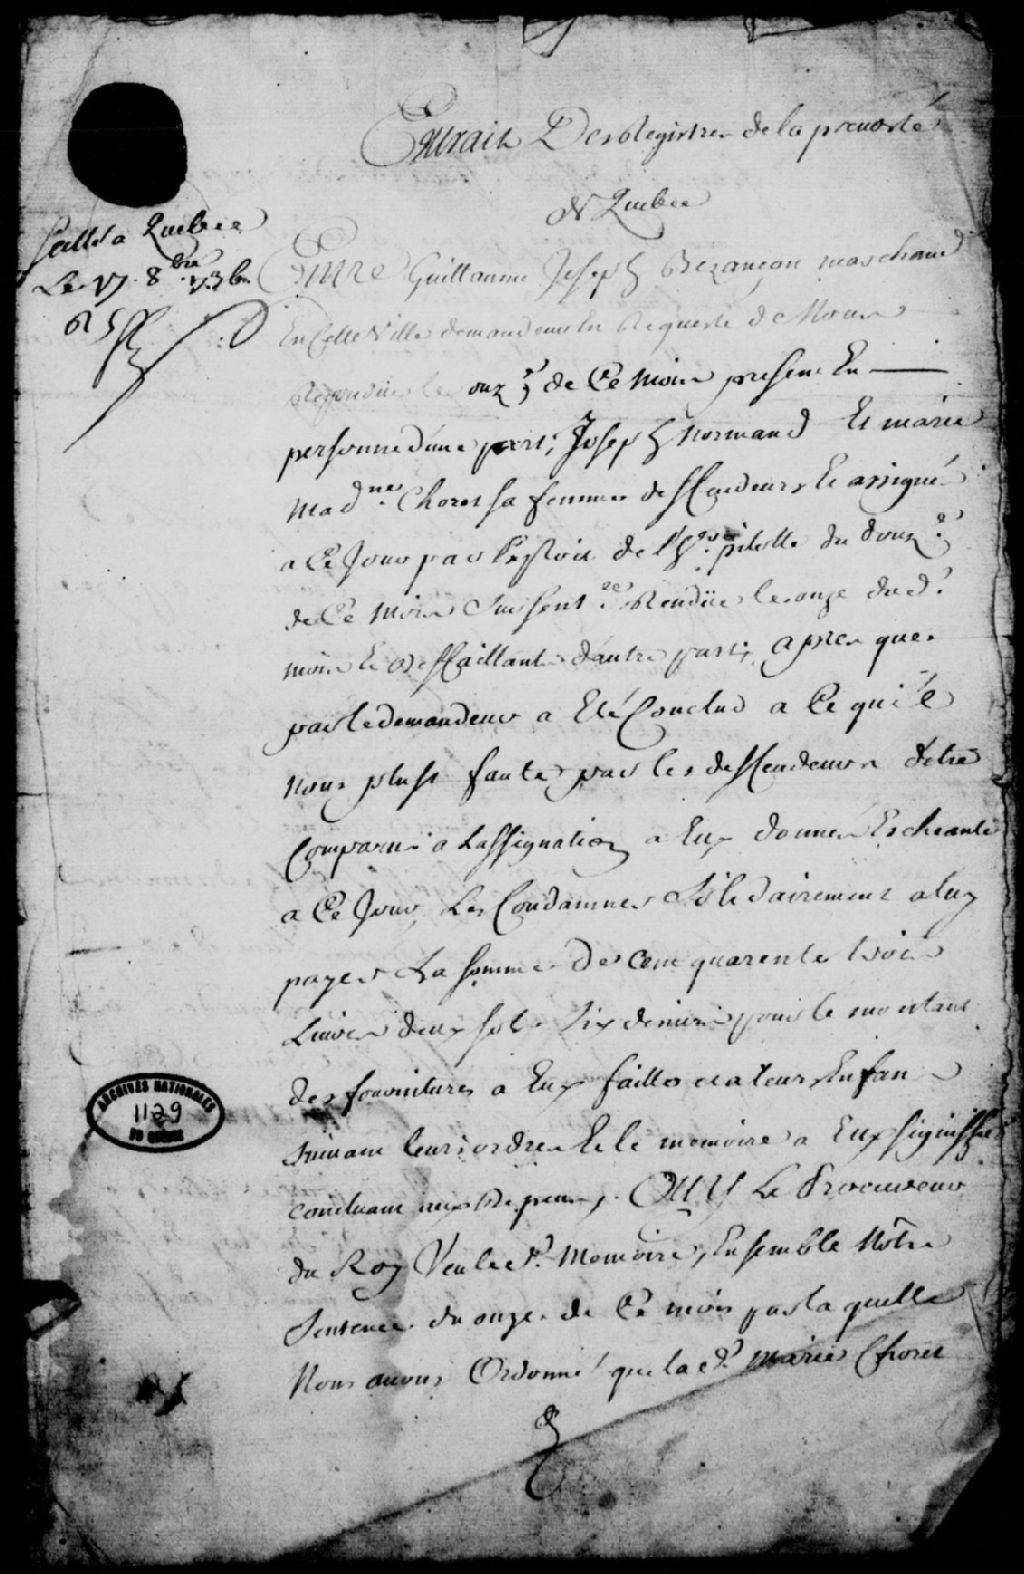 Extrait Des Registres de la prevosté
de Quebec
Scellé a Quebec
Le 17 8bre 1736
Entre Guillaume Joseph Bezançon marchand
En Cette Ville demandeur En Requeste de Nous
Repondüe le onz.e de Ce mois present En
personne d'une part; Joseph Normand Et marie
Mad.ne Choret sa femme deffendeurs Et assignés
a Ce Jour par Exploit de l'h.er pilotte du douz.e
de Ce mois Sur Sent.ce Rendüe le onze dud.
mois Et Deffaillants d'autre part; apres que
par le demandeur a Eté Conclud a Ce qu'il
Nous plust faute par les deffendeurs d'etre
Comparu a Lassignation a Eux donnée Escheante
a Ce Jour, Les Condamner Solidairement a luy
payer La somme De cent quarente trois
Livres deux sols six deniers pour le montant
des fournitures a Eux faittes et a leurs Enfans
suivant leurs ordres Et le memoire a Eux signiffié
concluant aux Depens, OUY Le Procureur
du Roy Veu led. Memoire, Ensemble Nôtre
Sentence du onze de Ce mois par la quelle
Nous avons Ordonné que lad. marie Choret
ARCHIVES NATIONALES
1129
DU QUÉBEC